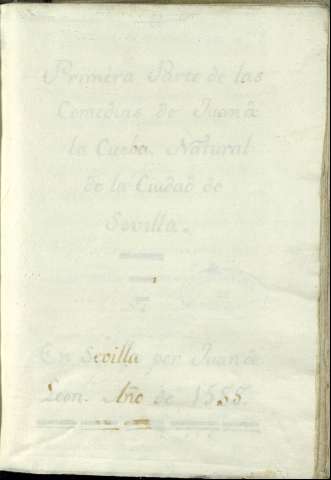 Primera Parte de las
Comedias de Juan de
la Cueba. Natural
de la Ciudad de
Sevilla.
En Sevilla por Juan de
Leon. Año de 1588.